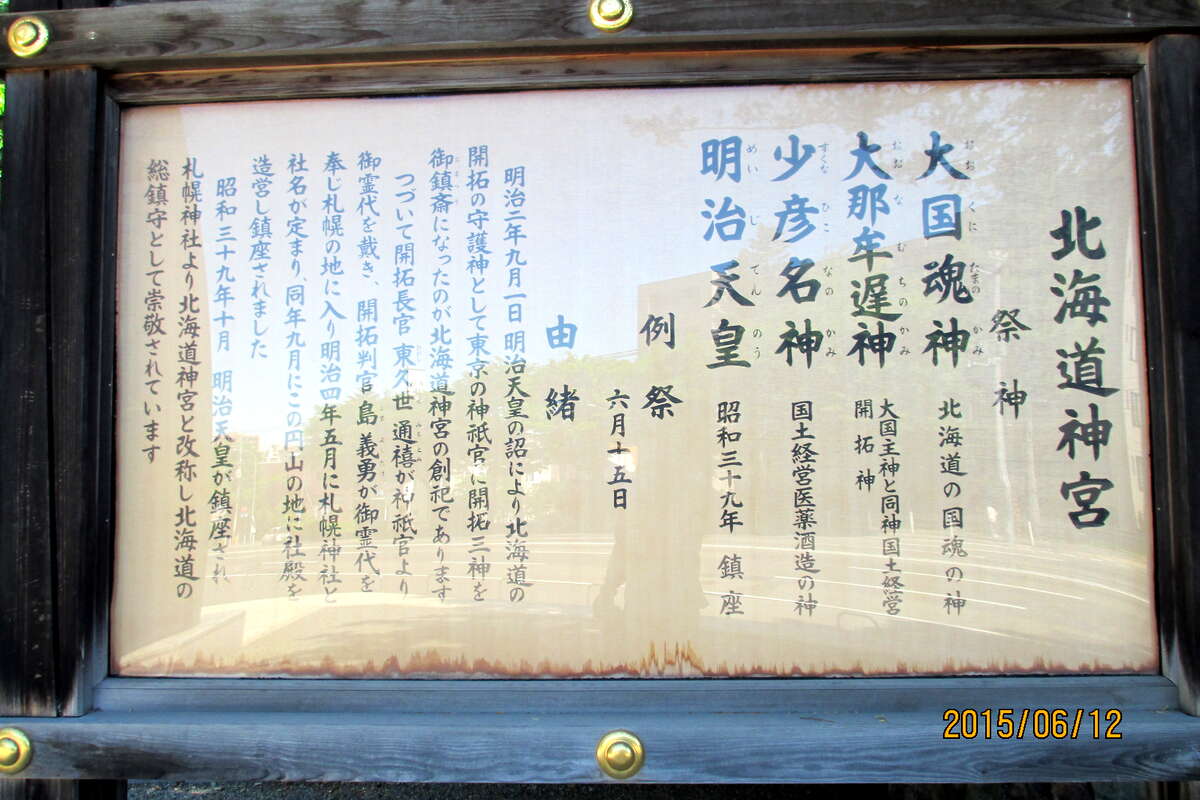 北海道神宮
祭神
大国魂神 北海道の国魂の神
おおくにたまのかみ
大那牟遅神 大国主神と同神国土経営
開拓神
おおなむちのかみ
少彦名神 国土経営医薬酒造の神
すくなひこなのかみ
明治天皇 昭和三十九年 鎮座
めいじてんのう
例祭
六月十五日
由緒
明治二年九月一日明治天皇の詔により北海道の
開拓の守護神として東京の神祇官に開拓三神を
御鎮斎になったのが北海道神宮の創祀であります
つづいて開拓長官 東久世通禧が神祇官より
御霊代を戴き、開拓判官島義勇が御霊代を
奉じ札幌の地に入り明治四年五月に札幌神社と
社名が定まり、同年九月にこの円山の地に社殿を
造営し鎮座されました
昭和三十九年十月 明治天皇が鎮座され
札幌神社より北海道神宮と改称し北海道の
総鎮守として崇敬されています
2015/06/12